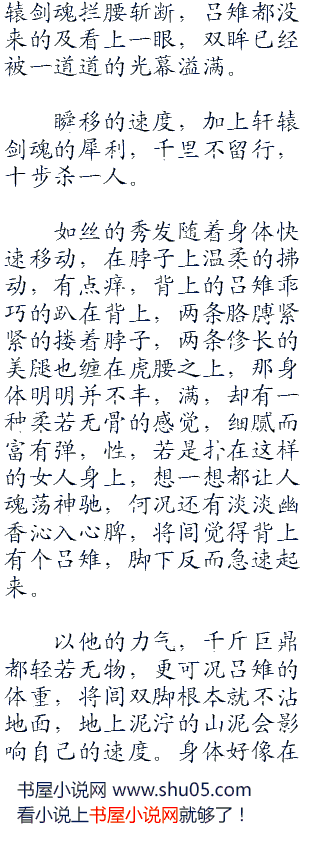 辕剑魂拦腰斩断，吕雉都没
来的及看上一眼，双眸已经
被一道道的光幕溢满。
瞬移的速度，加上轩辕
剑魂的犀利，千里不留行，
十步杀一人。
如丝的秀发随着身体快
速移动，在脖子上温柔的拂
动，有点痒，背上的吕雉乖
巧的趴在背上，两条胳膊紧
紧的搂着脖子，两条修长的
美腿也缠在虎腰之上，那身
体明明并不丰，满，却有一
种柔若无骨的感觉，细腻而
富有弹，性，若是扑在这样
的女人身上，想一想都让人
魂荡神驰，何况还有淡淡幽
香沁入心脾，将闾觉得背上
有个吕雉，脚下反而急速起
来。
以他的力气，千斤巨鼎
都轻若无物，更可况吕雉的
体重，将闾双脚根本就不沾
地面，地上泥泞的山泥会影
响自己的速度。身体好像在
书屋小说网 www.shu05.com
看小说上书屋小说网就够了！